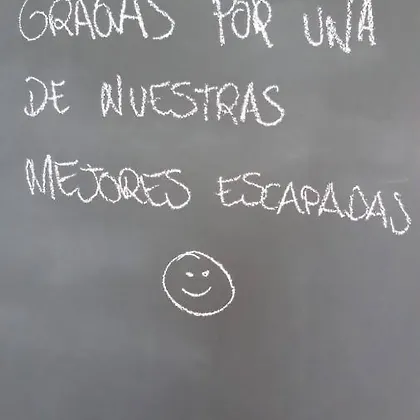 GRACIAS POR UNA
DE NUESTRAS
MEJORES ESCAPADAS